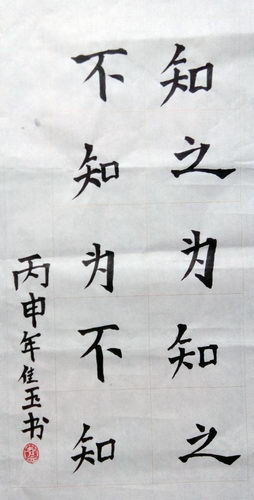 知之为知之
不知为不知
丙申年佳玉书